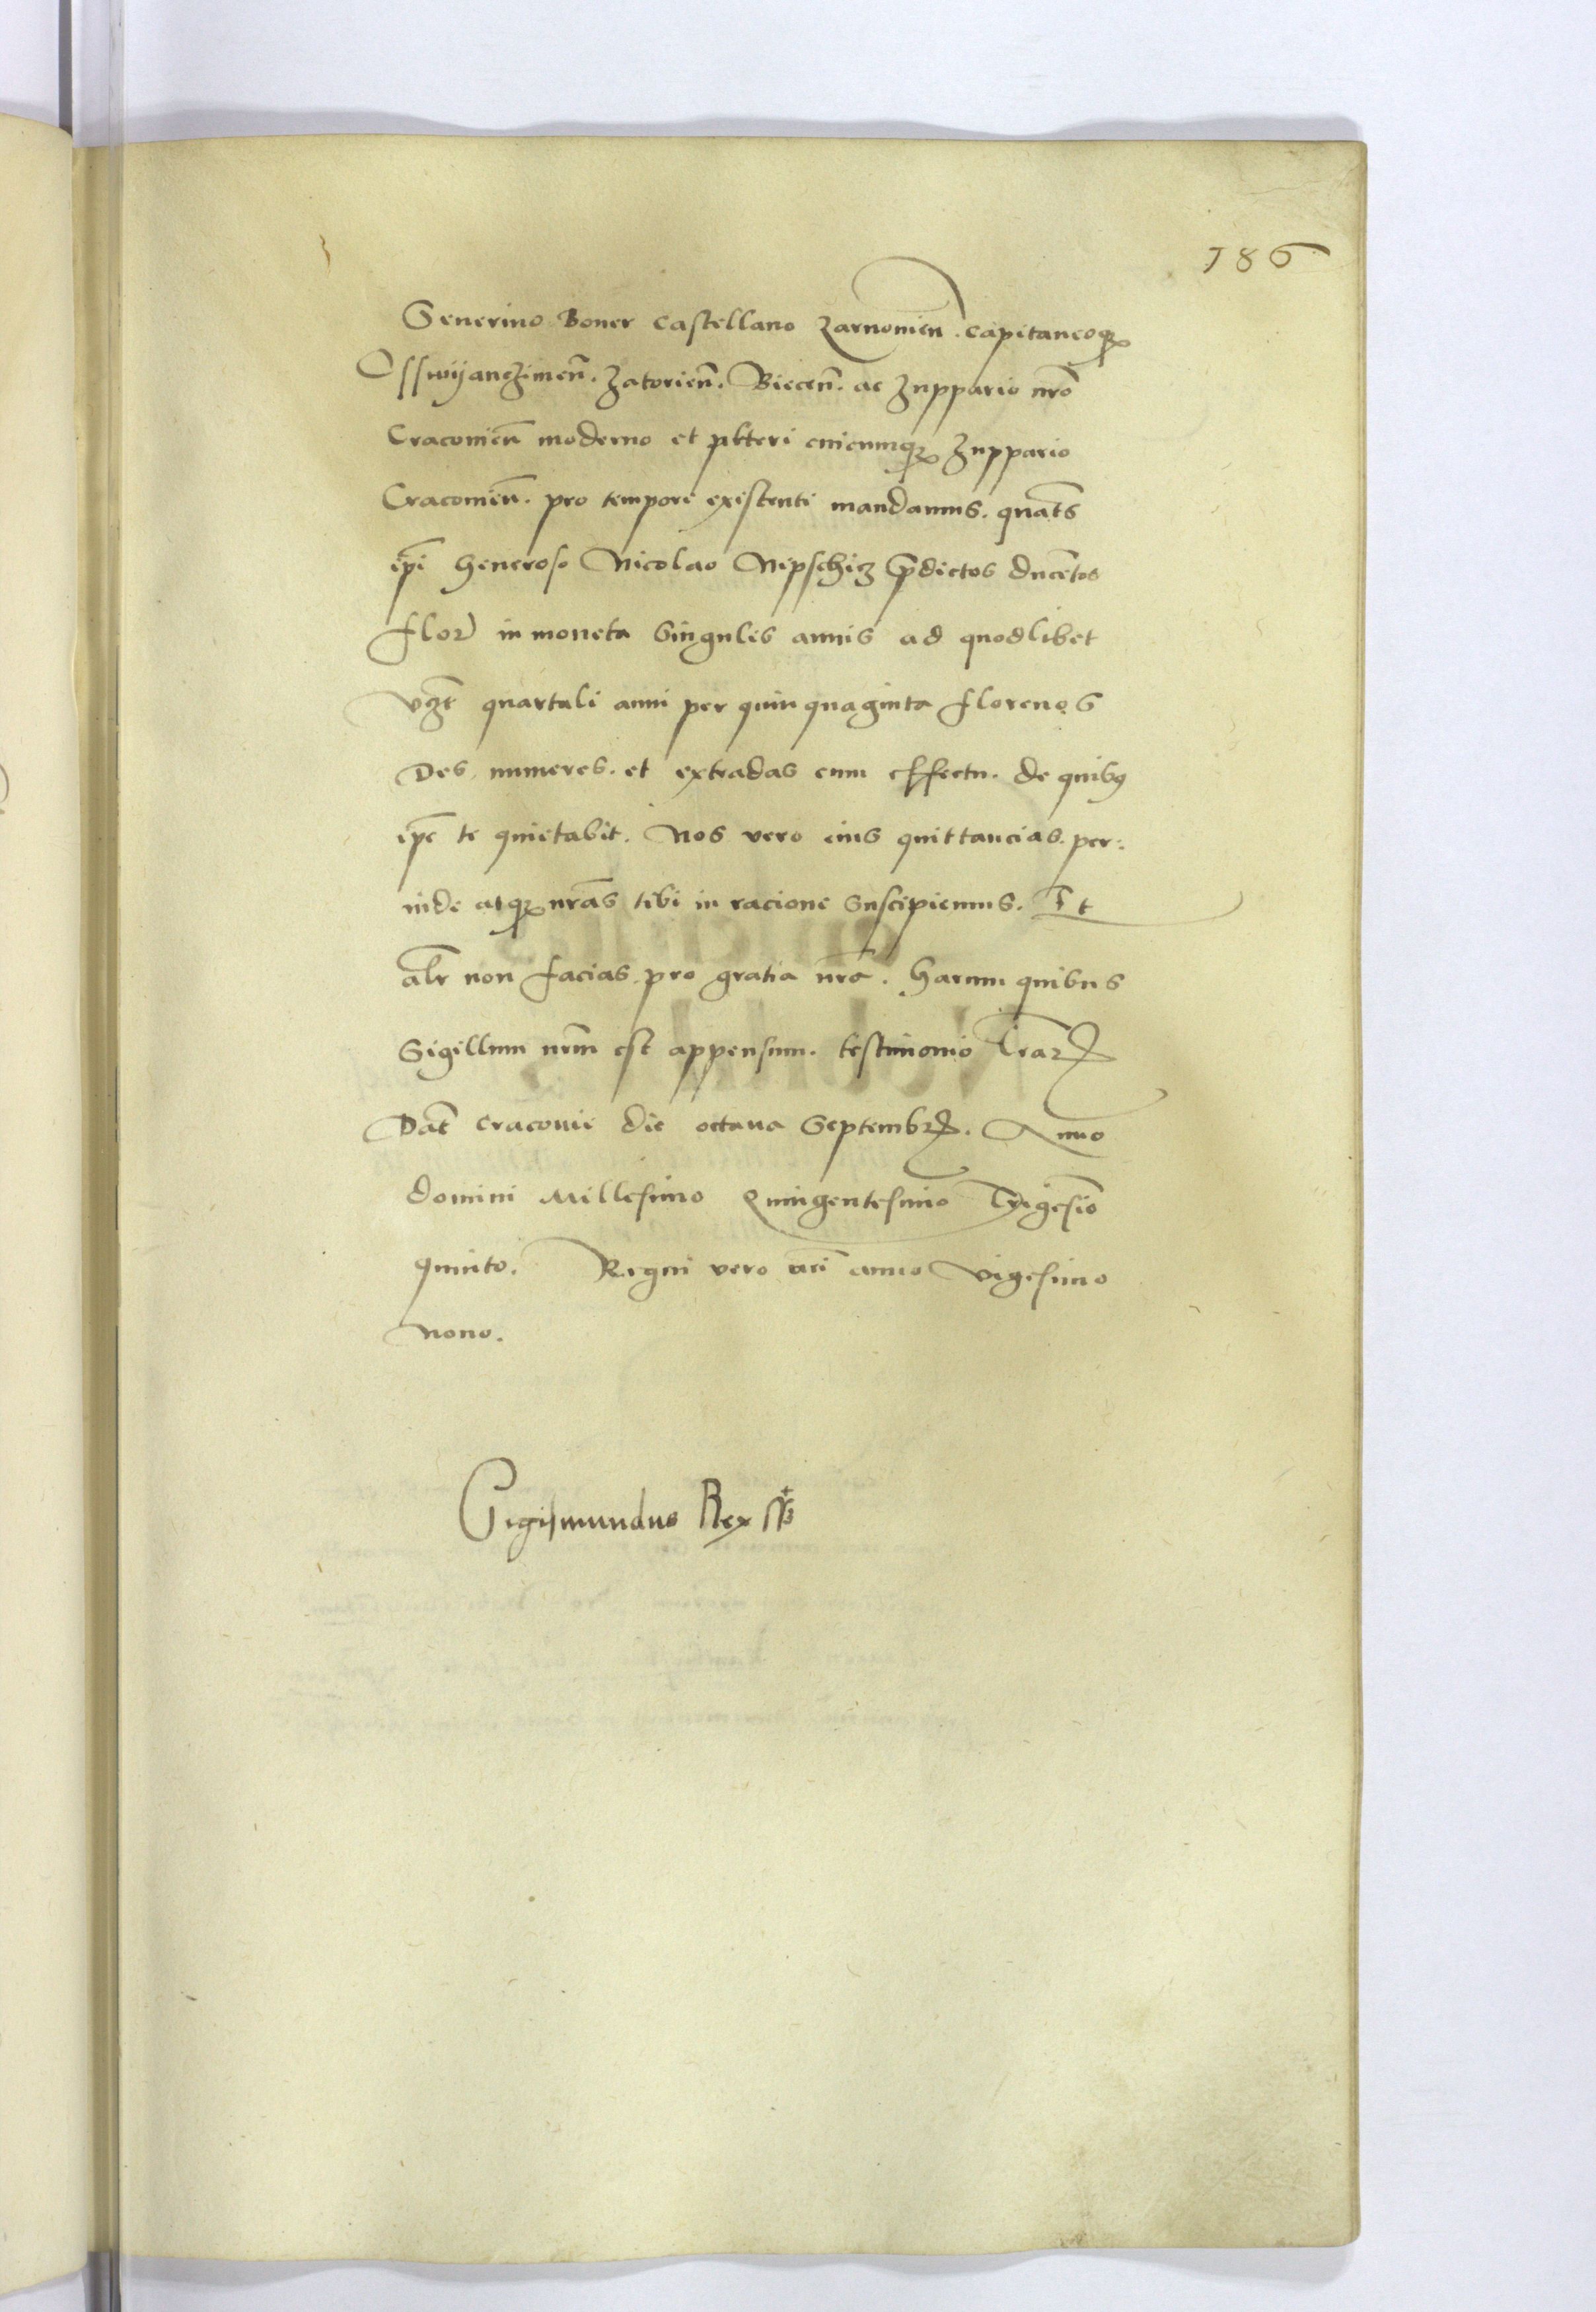 186
Severino Boner Castellano Zarnovien̄. Capitaneoqꝫ
Osswijanczimen̄. Zatorien̄. Biecen̄. ac Zuppario nr̄o
Cracovien̄ moderno et pl̄teri cuicumqꝫ Zuppario
Cracovien̄. pro tempore existenti mandamus. quat̄s
ip̄i Generoso Nicolao Nipschicz p̄dictos ducētos
flor in moneta singulis annis ad quodlibet
vꝫt quartuli anni per quinquaginta florenos
Des, numeres. et extradas cum effectu. de quibꝰ
ip̄e te quietabit. Nos vero eius quittancias. per:
inde atqꝫ nr̄as tibi in racione suscipiemus. Et
alr̄ non facias. pro gratia nr̄a. Harum quibus
Sigillum nr̄m est appensum. testimonio lr̄aꝝ
Dat̄ Cracovie die octava Septembrꝭ. Anno
domini Millesimo Quingentesimo Trigesīo
quinto. Regni vero nr̄i anno vigesimo
nono.
Sigismundus Rex sst